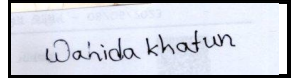 Wahida khatun